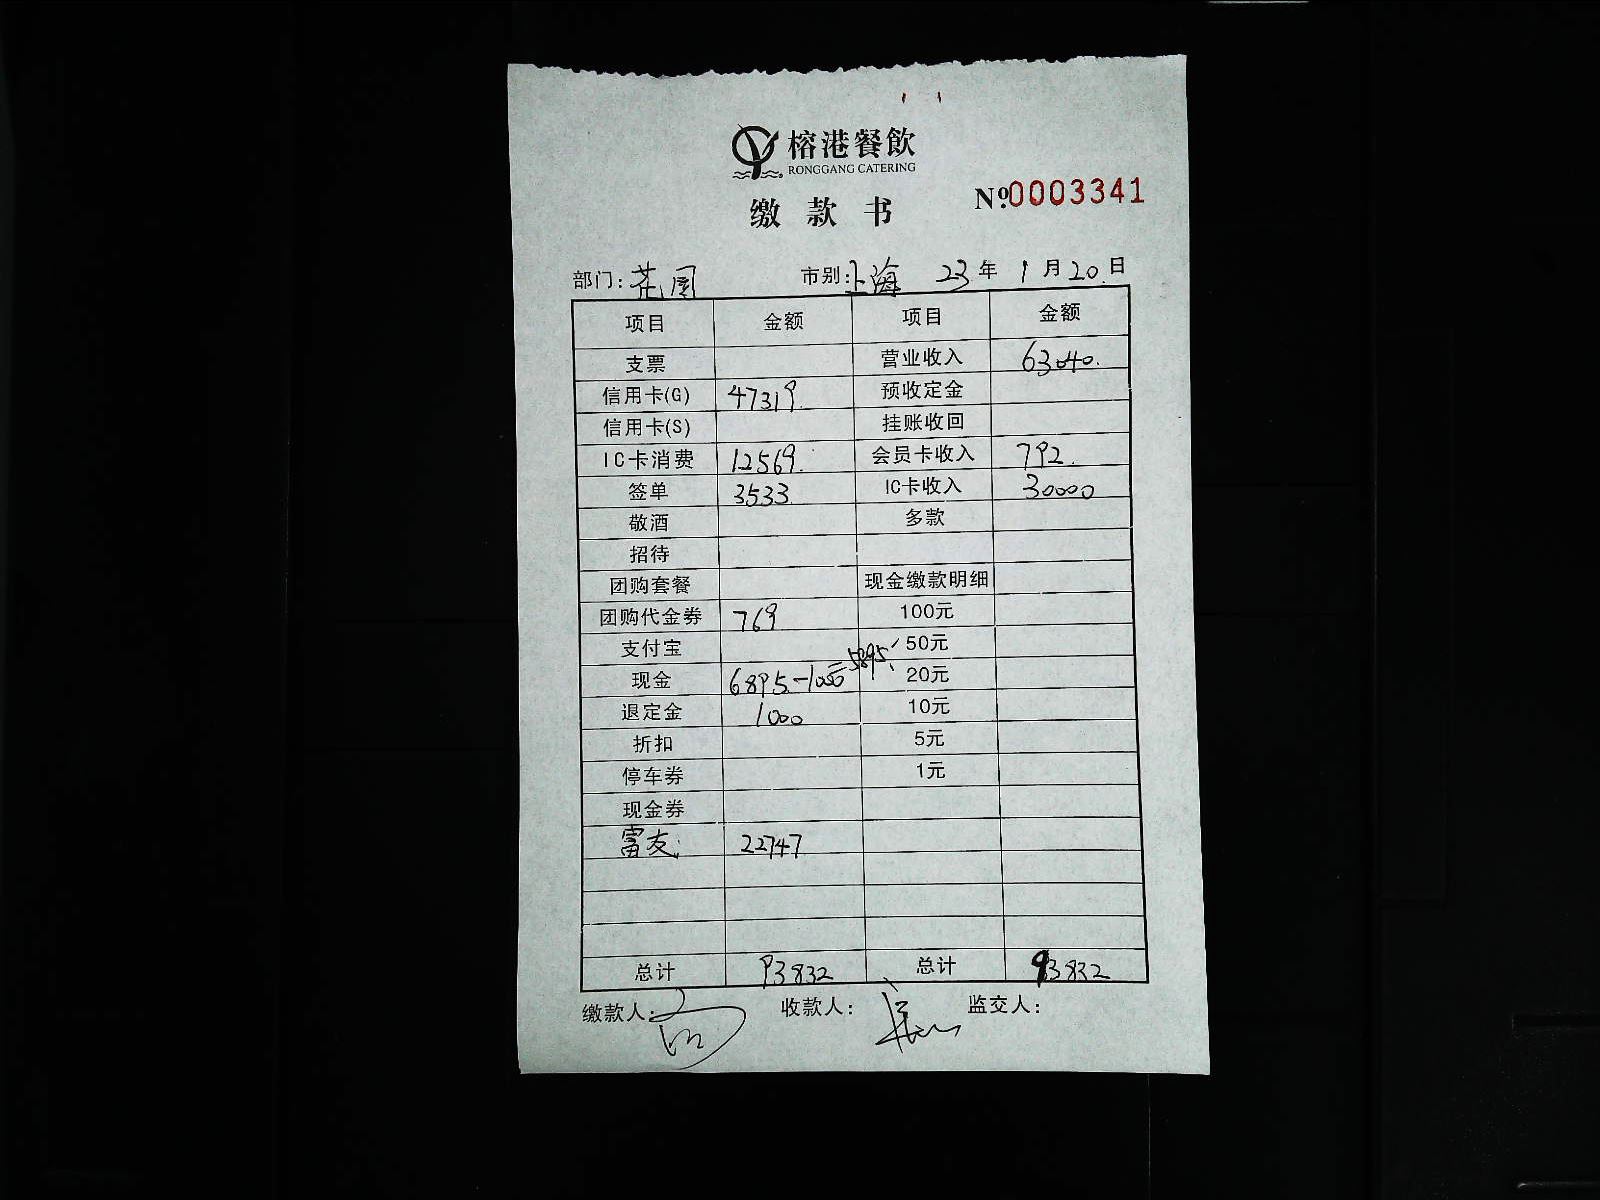 榕港餐飲
RONGGANG CATERING
缴款书 №0003341
部门: 花园 市别: 上海 23年1月20.日
项目 金额 项目 金额
支票 营业收入 63040.
信用卡(G) 47319. 预收定金
信用卡(S) 挂账收回
IC卡消费 12569. 会员卡收入 792.
签单 3533 IC卡收入 30000
敬酒 多款
招待
团购套餐 现金缴款明细
团购代金券 769 100元
支付宝 50元
现金 6895-1000=5895 20元
退定金 1000 10元
折扣 5元
停车券 1元
现金券
富友 22747
总计 93832 总计 93832
缴款人: 收款人: 监交人: